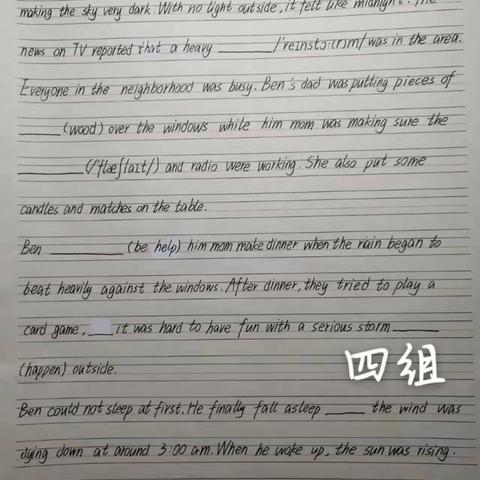 making the sky very dark. With no light outside, it felt like midnight. The
news on TV reported that a heavy ______ /'reɪnstɔ:(r)m/ was in the area.
Everyone in the neighborhood was busy. Ben's dad was putting pieces of
______ (wood) over the windows while him mom was making sure the
______ (/'flæʃlaɪt/) and radio were working. She also put some
candles and matches on the table.
Ben ______ (be help) him mom make dinner when the rain began to
beat heavily against the windows. After dinner, they tried to play a
card game, ___ it was hard to have fun with a serious storm ______
(happen) outside.
四组
Ben could not sleep at first. He finally fall asleep ____ the wind was
dying down at around 3:00 a.m. When he woke up, the sun was rising.